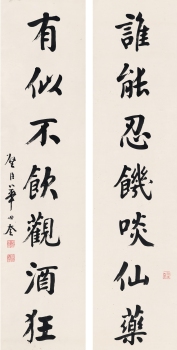 誰能忍饑啖仙藥
有似不飲觀酒狂